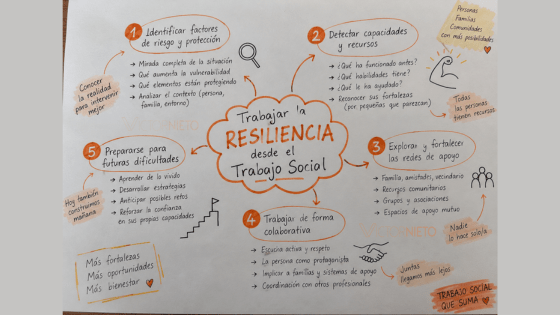 Trabajar la
RESILIENCIA
desde el
Trabajo Social
1 Identificar factores
de riesgo y protección
→ Mirada completa de la situación
→ Qué aumenta la vulnerabilidad
→ Qué elementos están protegiendo
→ Analizar el contexto (persona,
familia, entorno)
Conocer
la realidad
para intervenir
mejor
2 Detectar capacidades
y recursos
→ ¿Qué ha funcionado antes?
→ ¿Qué habilidades tiene?
→ ¿Qué le ha ayudado?
→ Reconocer sus fortalezas
(por pequeñas que parezcan)
Personas
Familias
Comunidades
con más posibilidades
Todas
las personas
tienen recursos
3 Explorar y fortalecer
las redes de apoyo
→ Familia, amistades, vecindario
→ Recursos comunitarios
→ Grupos y asociaciones
→ Espacios de apoyo mutuo
Nadie
lo hace solo/a
4 Trabajar de forma
colaborativa
→ Escucha activa y respeto
→ La persona como protagonista
→ Implicar a familias y sistemas de apoyo
→ Coordinación con otros profesionales
Juntas
llegamos más lejos
5 Prepararse para
futuras dificultades
→ Aprender de lo vivido
→ Desarrollar estrategias
→ Anticipar posibles retos
→ Reforzar la confianza
en sus propias capacidades
Hoy también
construimos
mañana
Más fortalezas
Más oportunidades
Más bienestar
TRABAJO SOCIAL
QUE SUMA